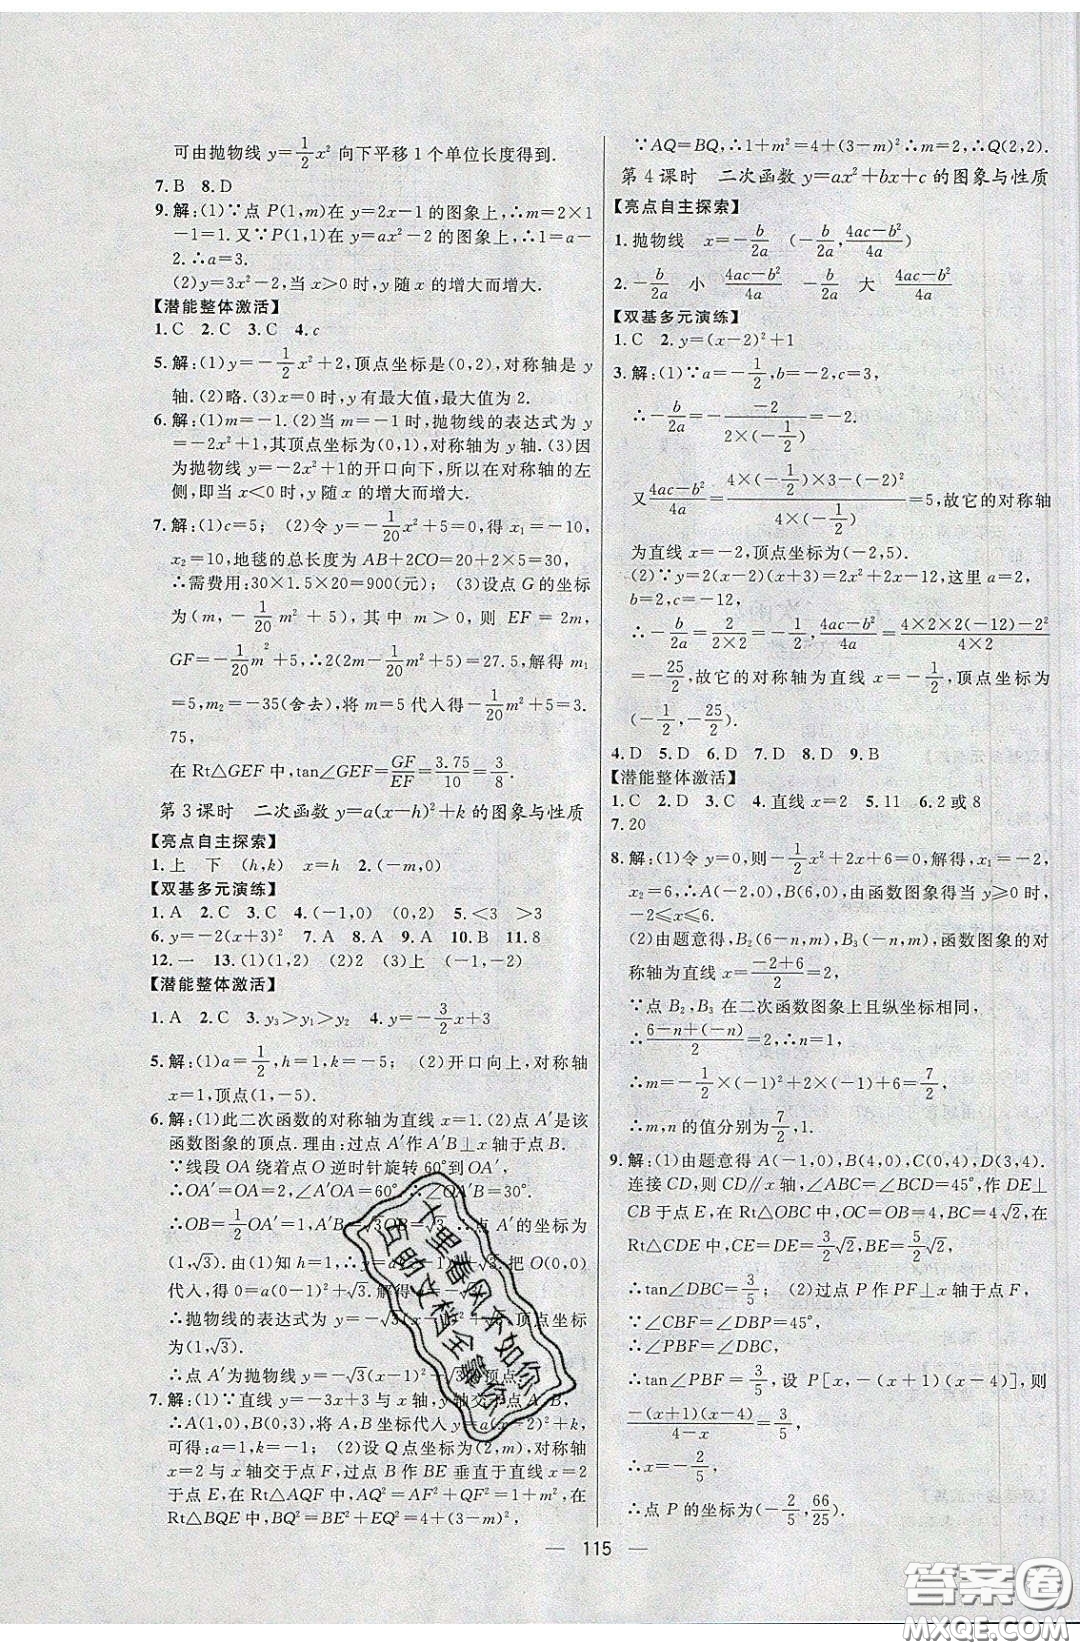 可由抛物线 y=1/2x² 向下平移 1 个单位长度得到.
7. B  8. D
9. 解:(1)∵点 P(1,m)在 y=2x-1 的图象上,∴m=2×1
-1=1. 又∵P(1,1)在 y=ax²-2 的图象上,∴1=a-
2. ∴a=3.
(2)y=3x²-2,当 x>0 时,y 随 x 的增大而增大.
【潜能整体激活】
1. C  2. C  3. C  4. c
5. 解:(1)y=-1/2x²+2,顶点坐标是(0,2),对称轴是 y
轴. (2)略. (3)x=0 时,y 有最大值,最大值为 2.
6. 解:(1)m=-1. (2)当 m=-1 时,抛物线的表达式为
y=-2x²+1,其顶点坐标为(0,1),对称轴为 y 轴. (3)因
为抛物线 y=-2x²+1的开口向下,所以在对称轴的左
侧,即当 x<0 时,y 随 x 的增大而增大.
7. 解:(1)c=5; (2)令 y=-1/20x²+5=0,得 x₁=-10,
x₂=10,地毯的总长度为 AB+2CO=20+2×5=30,
∴需费用:30×1.5×20=900(元); (3)设点 G 的坐标
为(m,-1/20m²+5),其中 m>0,则 EF=2m,
GF=-1/20m²+5,∴2(2m-1/20m²+5)=27.5,解得 m₁
=5,m₂=-35(舍去),将 m=5 代入得-1/20m²+5=3.
75,
在 Rt△GEF 中,tan∠GEF=GF/EF=3.75/10=3/8.
第 3 课时  二次函数 y=a(x-h)²+k 的图象与性质
【亮点自主探索】
1. 上  下  (h,k)  x=h  2. (-m,0)
【双基多元演练】
1. A  2. C  3. C  4. (-1,0)  (0,2)  5. <3  >3
6. y=-2(x+3)²  7. A  8. A  9. A  10. B  11. 8
12. 一  13. (1)(1,2)  (2)2  (3)上  (-1,-2)
【潜能整体激活】
1. A  2. C  3. y₃>y₁>y₂  4. y=-3/2x+3
5. 解:(1)a=1/2,h=1,k=-5; (2)开口向上,对称轴
x=1,顶点(1,-5).
6. 解:(1)此二次函数的对称轴为直线 x=1. (2)点 A′是该
函数图象的顶点. 理由:过点 A′作 A′B⊥x 轴于点 B.
∵线段 OA 绕着点 O 逆时针旋转 60°到 OA′,
∴OA′=OA=2,∠A′OA=60°,∴∠OA′B=30°.
∴OB=1/2OA′=1,A′B=√3OB=√3,∴点 A′的坐标为
(1,√3). (2)由(1)知 h=1,∴y=a(x-1)²+√3. 把 O(0,0)
代入,得 0=a(0-1)²+√3. 解得
∴抛物线的表达式为 y=-√3(x-1)²+√3, 顶点坐标为
(1,√3).
∴点 A′为抛物线 y=-√3(x-1)²+√3的顶点.
7. 解:(1)∵直线 y=-3x+3 与 x 轴,y 轴交于点 A,B,
∴A(1,0),B(0,3),将 A,B 坐标代入 y=a(x-2)²+k,
可得:a=1,k=-1; (2)设 Q 点坐标为(2,m),对称轴
x=2 与 x 轴交于点 F,过点 B 作 BE 垂直于直线 x=2
于点 E,在 Rt△AQF 中,AQ²=AF²+QF²=1+m²,在
Rt△BQE 中,BQ²=BE²+EQ²=4+(3-m)²,
∵AQ=BQ,∴1+m²=4+(3-m)²,∴m=2,∴Q(2,2).
第 4 课时  二次函数 y=ax²+bx+c 的图象与性质
【亮点自主探索】
1. 抛物线  x=-b/2a  (-b/2a,(4ac-b²)/4a)
2. -b/2a  小  (4ac-b²)/4a  -b/2a  大  (4ac-b²)/4a
【双基多元演练】
1. C  2. y=(x-2)²+1
3. 解:(1)∵a=-1/2,b=-2,c=3,
∴-b/2a=-(-2)/(2×(-1/2))=-2.
又(4ac-b²)/4a=(4×(-1/2)×3-(-2)²)/(4×(-1/2))=5,故它的对称轴
为直线 x=-2,顶点坐标为(-2,5).
(2)∵y=2(x-2)(x+3)=2x²+2x-12,这里 a=2,
b=2,c=-12,
∴-b/2a=-2/(2×2)=-1/2,(4ac-b²)/4a=(4×2×(-12)-2²)/(4×2)
=-25/2,故它的对称轴为直线 x=-1/2,顶点坐标为
(-1/2,-25/2).
4. D  5. D  6. D  7. D  8. D  9. B
【潜能整体激活】
1. C  2. D  3. C  4. 直线 x=2  5. 11  6. 2 或 8
7. 20
8. 解:(1)令 y=0,则-1/2x²+2x+6=0,解得 x₁=-2,
x₂=6,∴A(-2,0),B(6,0),由函数图象得当 y≥0 时,
-2≤x≤6.
(2)由题意得,B₂(6-n,m),B₃(-n,m),函数图象的对
称轴为直线 x=(-2+6)/2=2,
∵点 B₂,B₃ 在二次函数图象上且纵坐标相同,
∴(6-n+(-n))/2=2,∴n=1,
∴m=-1/2×(-1)²+2×(-1)+6=7/2,
∴m,n 的值分别为7/2,1.
9. 解:(1)由题意得 A(-1,0),B(4,0),C(0,4),D(3,4).
连接 CD,则 CD∥x 轴,∠ABC=∠BCD=45°,作 DE⊥
CB 于点 E,在 Rt△OBC 中,OC=OB=4,BC=4√2,在
Rt△CDE 中,CE=DE=3/2√2,BE=5/2√2,
∴tan∠DBC=3/5; (2)过点 P 作 PF⊥x 轴于点 F,
∵∠CBF=∠DBP=45°,
∴∠PBF=∠DBC,
∴tan∠PBF=3/5,设 P[x,-(x+1)(x-4)],则
-(x+1)(x-4)/(4-x)=3/5,
∴x=-2/5,
∴点 P 的坐标为(-2/5,66/25).
— 115 —
上里春风不如你
互助文档全靠你
答案圈
MXQE.COM